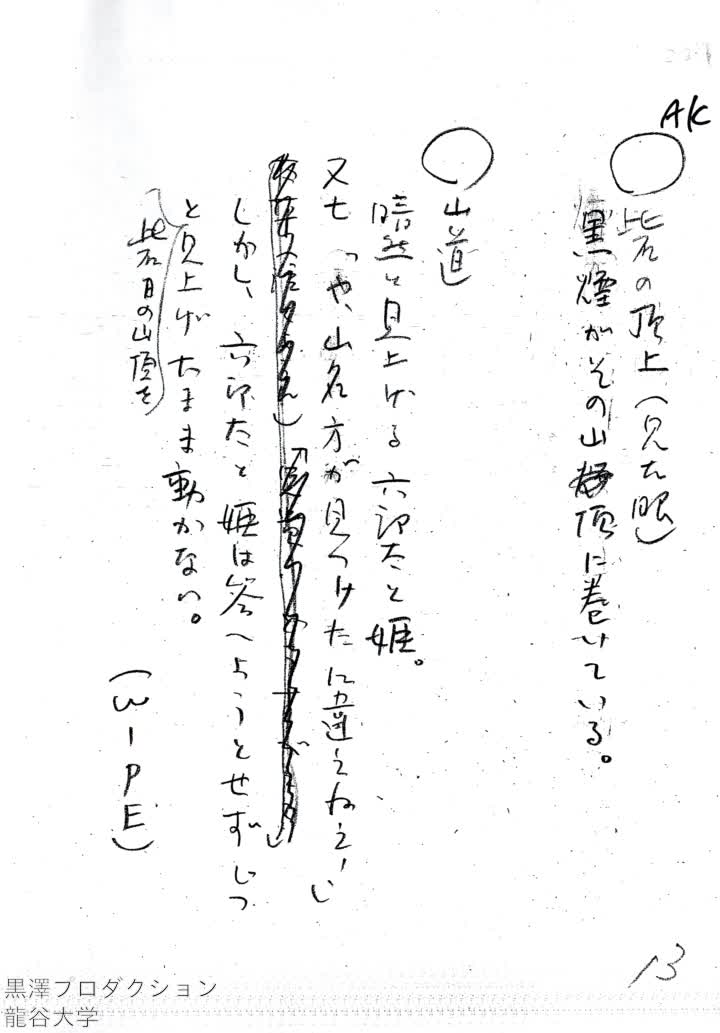 AK
○ 砦の頂上(見た眼)
黒煙がその山頂に巻いている。
○ 山道
暗然と見上げる六郎太と姫。
又七「や、山名方が見つけたに違えねえ!」
しかし、六郎太と姫は答へようとせずじっ
と見上げたまま動かない。
砦の山頂を
(WIPE)
13
黒澤プロダクション
龍谷大学